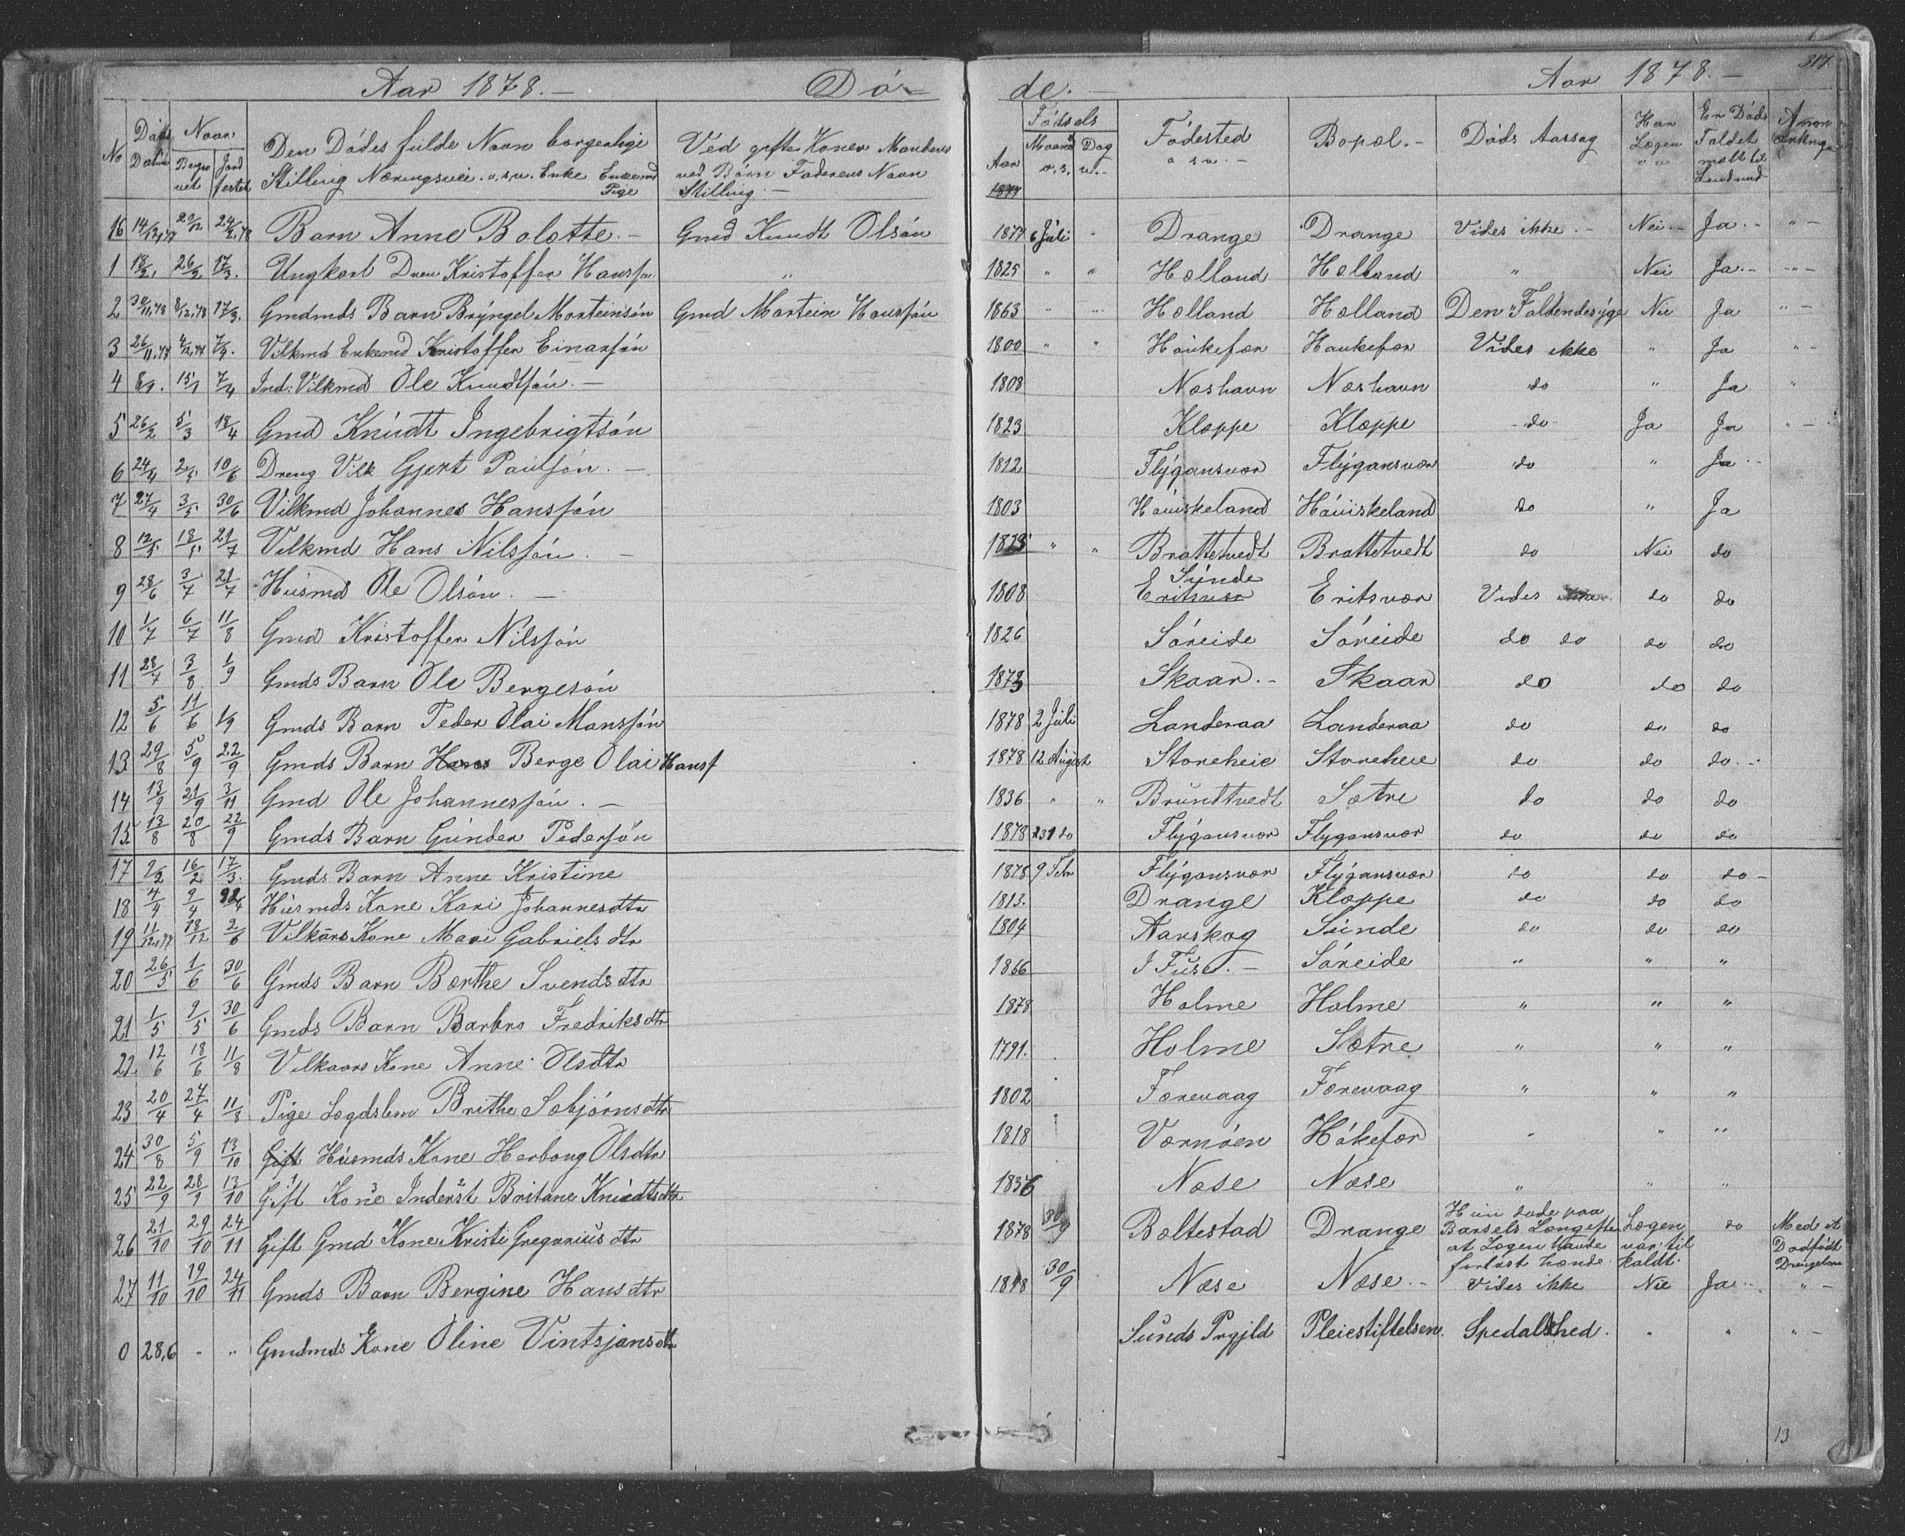 Aar 1878. — Dö — de. — Aar 1878. — 317.
No Döds Datum Naar Begravet Jordfestet Den Dödes fulde Navn borgerlige Stilling Næringsvei o.s.v. Enke Enkemd Pige Ved gifte Koner Mandens ved Börn Faderens Navn Stilling. — Födsels Aar Maaned Dag Födested o.s.v. — Bopæl. — Döds Aarsag Har Lægen Er Döds Anmærkning
16 14/12,77 20/12 24/2,78 Barn Anne Bolette. — Gmd Knudt Olsön 1877 6 Juli " Drange Drange Vides ikke. — Nei — Ja — " —
1 18/2. 26/2 17/3. Ungkarl Dren Kristoffer Hanssøn " 1825 " " Hælland Hælland " Nei Ja. — " —
2 30/11,78 8/12,78 17/3. Gmdmds Barn Brÿngel Morteinsön Gmd Mortein Hanssön 1863 " " Hælland Hælland Den Faldendesÿge Nei Ja " —
3 26/11,77 4/12,77 7/9. Vilkmd Enkemd Kristoffer Einarsön 1800 " " Haukefær Haukefær Vides ikke " Ja " —
4 8/1. 15/1 7/4 Ind: Vilkmd Ole Knudtsön. — 1808 Næshavn Næshavn do " Ja "
5 26/2 5/3 18/4 Gmd Knudt Ingebrigtsön 1823 Klæppe Klæppe do Ja Ja " —
6 24/4 2/5 10/6 Dreng Vilk Gjert Paulsön. — 1812 Flÿgansvær Flÿgansvær do " Ja. —
7 27/4 3/5 30/6 Vilkmd Johannes Hanssön 1803 Haüiskeland Haüiskeland do " Ja
8 12/5 18/5 21/7 Vilkmd Hans Nilssön. — 1825 " " Brattetvedt Brattetvedt do Nei do
9 28/6 3/7 21/7 Husmd Ole Olsön. — 1808 Sünde Eritsvær Eritsvær Vides ikke do do
10 1/7 6/7 11/8 Gmd Kristoffer Nilssön 1826 Söreide Söreide do do do do
11 28/7 3/8 1/9 Gmds Barn Ole Bergesön 1873 Skaar. — Skaar do do do
12 5/6 11/6 1/9 Gmds Barn Peder Olai Manssön 1878 2 Juli Landeraa Landeraa do do do
13 29/8 5/9 22/9 Gmds Barn Hans Berge Olai Hansf 1878 12 August Storeheie Storeheie do do do. —
14 13/9 21/9 3/11 Gmd Ole Johannessön. — 1836 " " Brundtvedt Sætre do do do
15 13/8 20/8 22/9 Gmds Barn Günder Pedersön 1878 231 do Flÿgansvær Flygansvær do do do
17 9/2 16/2 17/3. Gmds Barn Anne Kristine 1878 9 Febr Flÿgansvær Flÿgansvær do do do —
18 4/4 9/4 Husmds Kone Kari Johannesdtr 1813. Drange Klæppe do do do
19 11/12,77 18/12 2/6 Vilkårs Kone Mari Gabrielsdtr 1804 Aarskog Sünde do do do
20 26/5 1/6 30/6 Gmds Barn Bærthe Svendsdtr 1866 I Füse. — Söreide " " "
21 1/5 9/5 30/6 Gmds Barn Barbro Fredriksdtr 1878 Holme Holme " " "
22 12/6 18/6 11/8 Vilkaars Kone Anne Olsdtr 1791. Holme Sætre " " "
23 20/4 27/4 11/8 Pige Lægdslem Brithe Sebjörnsdtr 1802 Færevaag Færevaag " " "
24 30/8 5/9 13/10 Gift Hüsmds Kone Herborg Olsdtr 1818 Værnöen Håkefær " " "
25 22/9 28/9 13/10 Gift Kone Inderst Britane Knüdtsdtr 1836 Næse Næse " " "
26 21/10 29/10 24/11 Gift Gmd Kone Kristi Gregoriüsdtr 1878 30/9 Bæltestad Drange Hun döde paa Barsels Længefter at Lægen havde forlöst hende. Lægen var til kaldt. do Med et Dödfödt
27 11/10 19/10 24/11 Gmds Barn Bergine Hansdtr 1878 30/9 Næse Næse. — Vides ikke Nei Ja — " —
0 28,6 " " Gmdmds Kone Oline Vintsjansdtr Sunds Prgjld Pleiestiftelsen. Spedalskhed. " " " —
13